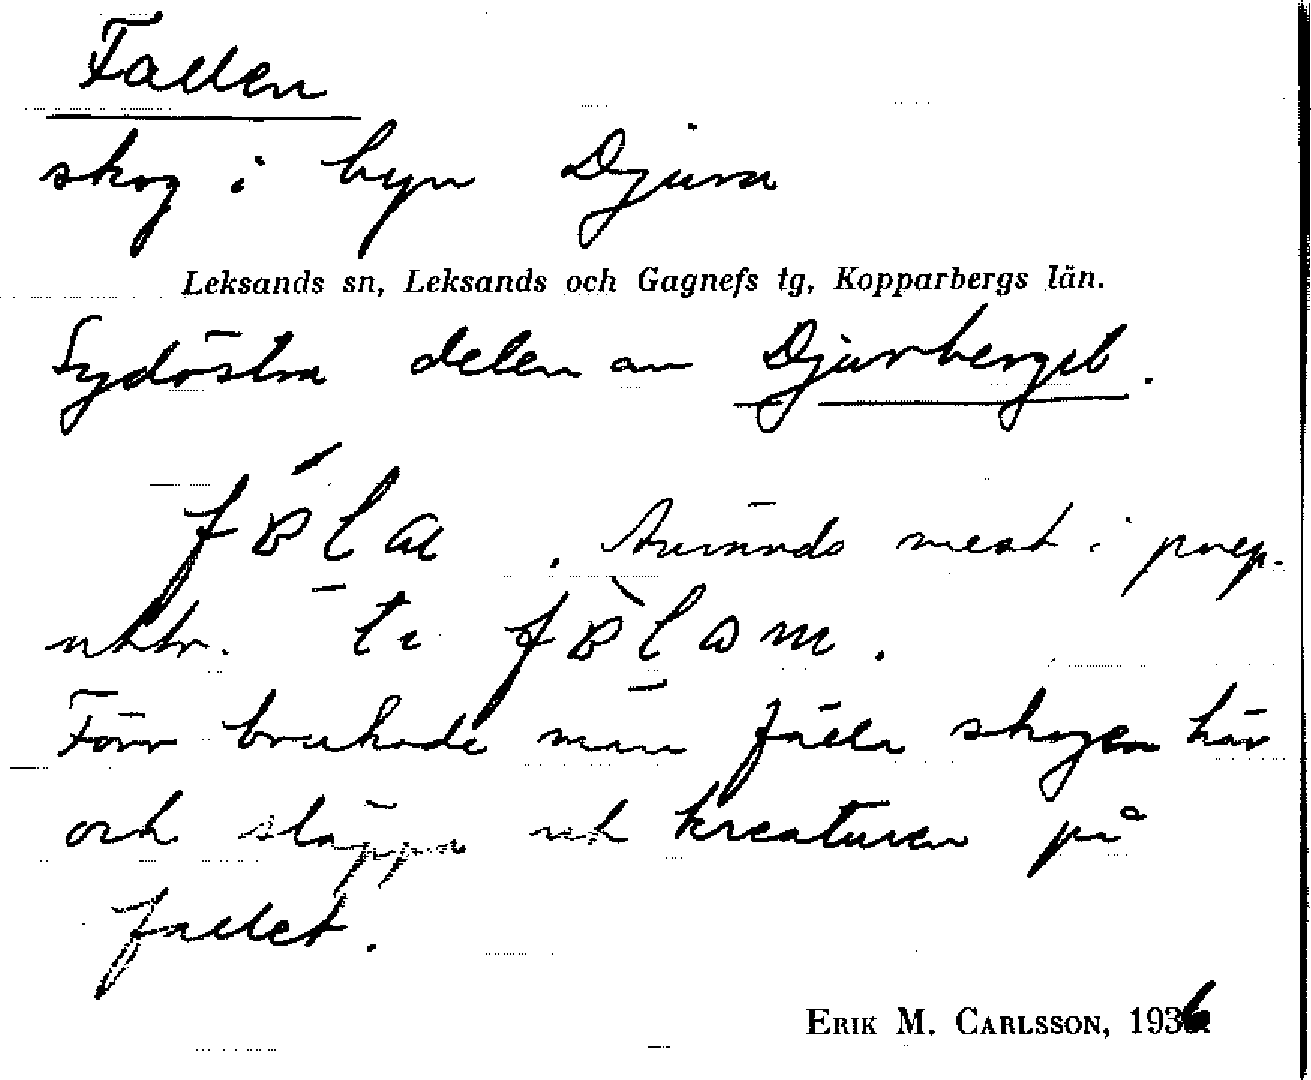 Fallen
skog i byn Djura
Leksands sn, Leksands och Gagnefs tg, Kopparbergs län.
Sydöstra delen av Djurberget.
Används mest i prep.
uttr. ti
Förr brukade man fälla skogen här
och släppa ut kreaturen på
fallet.
ERIK M. CARLSSON, 1936